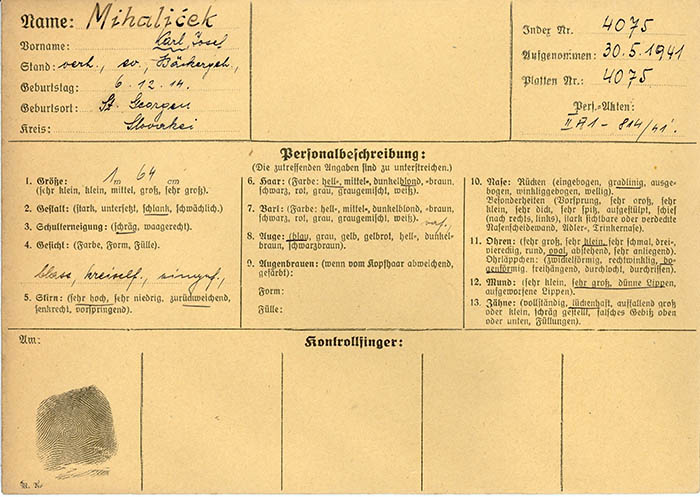 Name: Mihaliček
Vorname: Karl Josef
Stand: verh., ev., Bäckergeh.,
Geburtstag: 6. 12. 14.
Geburtsort: St. Georgen
Kreis: Slovakei
Index Nr. 4075
Aufgenommen: 30. 5. 1941
Platten Nr.: 4075
Pers.-Akten:
II A1 - 814/41.
Personalbeschreibung:
(Die zutreffenden Angaben sind zu unterstreichen.)
1. Größe: 1 m 64 cm
(sehr klein, klein, mittel, groß, sehr groß).
2. Gestalt: (stark, untersetzt, schlank, schwächlich).
3. Schulterneigung: (schräg, waagerecht).
4. Gesicht: (Farbe, Form, Fülle).
blass,
5. Stirn: (sehr hoch, sehr niedrig, zurückweichend,
senkrecht, vorspringend).
6. Haar: (Farbe: hell-, mittel-, dunkelblond, -braun,
schwarz, rot, grau, graugemischt, weiß).
7. Bart: (Farbe: hell-, mittel-, dunkelblond, -braun,
schwarz, rot, grau, graugemischt, weiß).
8. Auge: (blau, grau, gelb, gelbrot, hell-, dunkel-
braun, schwarzbraun).
9. Augenbrauen: (wenn vom Kopfhaar abweichend,
gefärbt):
Form:
Fülle:
10. Nase: Rücken (eingebogen, gradlinig, ausge-
bogen, winkliggebogen, wellig).
Besonderheiten (Vorsprung, sehr groß, sehr
klein, sehr dick, sehr spitz, aufgestülpt, schief
(nach rechts, links), stark sichtbare oder verdeckte
Nasenscheidewand, Adler-, Trinkernase).
11. Ohren: (sehr groß, sehr klein, sehr schmal, drei-,
viereckig, rund, oval, abstehend, sehr anliegend).
Ohrläppchen: (zwickelförmig, rechtwinklig, bo-
genförmig, freihängend, durchlocht, durchrissen).
12. Mund: (sehr klein, sehr groß, dünne Lippen,
aufgeworfene Lippen).
13. Zähne: (vollständig, lückenhaft, auffallend groß
oder klein, schräg gestellt, falsches Gebiß oben
oder unten, Füllungen).
Am:
Kontrollfinger: